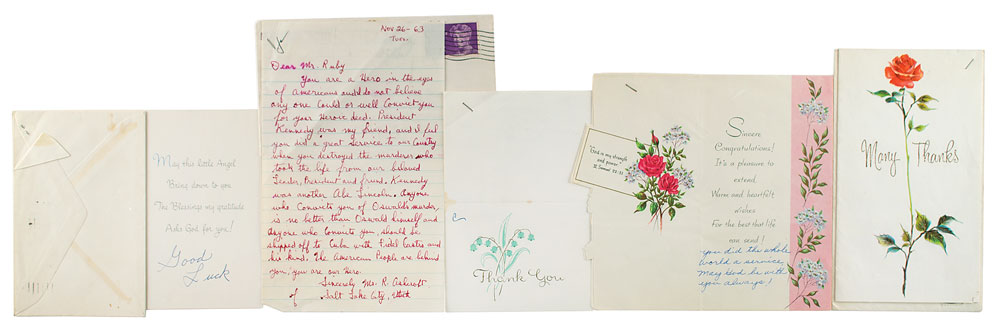 May this little Angel
Bring down to you
The Blessings my gratitude
Asks God for you!
Good
Luck
Nov 26-63
Tues.
Dear Mr. Ruby
You are a Hero in the eyes
of Americans and I do not believe
any one could or well Convict you
for your Heroic deed. President
Kennedy was my friend, and I ful
you did a great Service to our Country
when you destroyed the murderer who
took the life from our beloved
Leader, President and friend. Kennedy
was another Abe Lincoln. Anyone
who Convicts you of Oswald's murder,
is no better than Oswald himself and
anyone who Convicts you, should be
shipped off to Cuba with Fidel Castro and
his kind. The American People are behind
you, you are our Hero.
Sincerely Mr. R. Ashcroft
Salt Lake City, Utah
Thank You
"God is my strength
and power."
II Samuel 22:33
Sincere
Congratulations!
It's a pleasure to
extend,
Warm and heartfelt
wishes
For the best that life
can send!
you did the whole
world a service
May God be with
you always!
Many Thanks